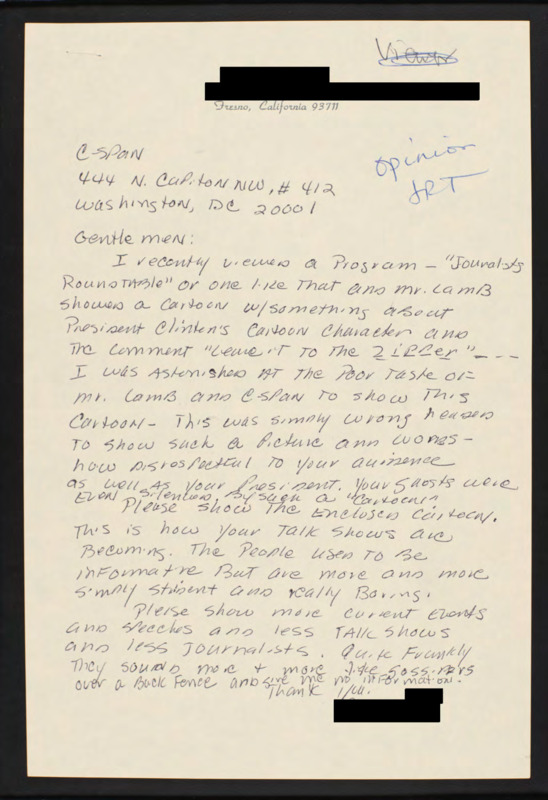 Viewer
Fresno, California 93711
opinion
JRT
C-SPAN
444 N. Capitol NW, # 412
Washington, DC 20001
Gentlemen:
I recently viewed a Program - "Journalists
Roundtable" or one like that and mr. Lamb
showed a cartoon w/something about
President Clinton's Cartoon Character and
The comment "Leave it to The Zipper" - - - -
I was Astonished at the Poor Taste of
mr. Lamb and C-SPAN to show This
Cartoon - This was simply wrong headed
To show such a Picture and words -
how Disrespectful To your audience
as well as your President. Your guests were
Even silenced by such a "cartoon"
Please show The Enclosed Cartoon.
This is how your Talk shows are
Becoming. The People used To Be
informative But are more and more
simply strident and really Boring.
Please show more current Events
and speeches and less Talk shows
and less Journalists. Quite Frankly
They sound more + more like gossipers
over a Back Fence and give me no information.
Thank